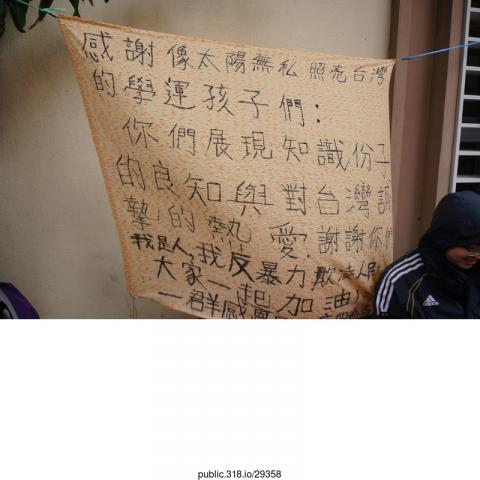 感謝像太陽無私照亮台灣
的學運孩子們：
你們展現知識份子
的良知與對台灣誠
摯的熱愛！謝謝你們
我是人，我反暴力欺法人民
大家一起加油！
一群感
adidas
public.318.io/29358